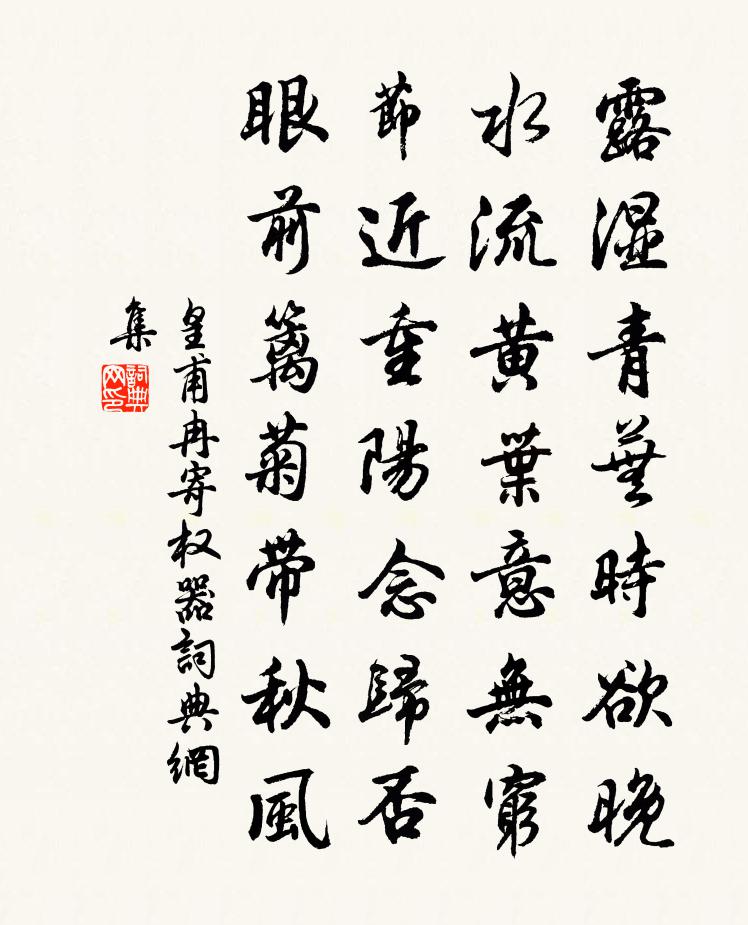 露湿青蕪時欲晚
水流黃葉意無窮
節近重陽念歸否
眼前籬菊帶秋風
皇甫冉寄权器詞典網
集
詞典
网印